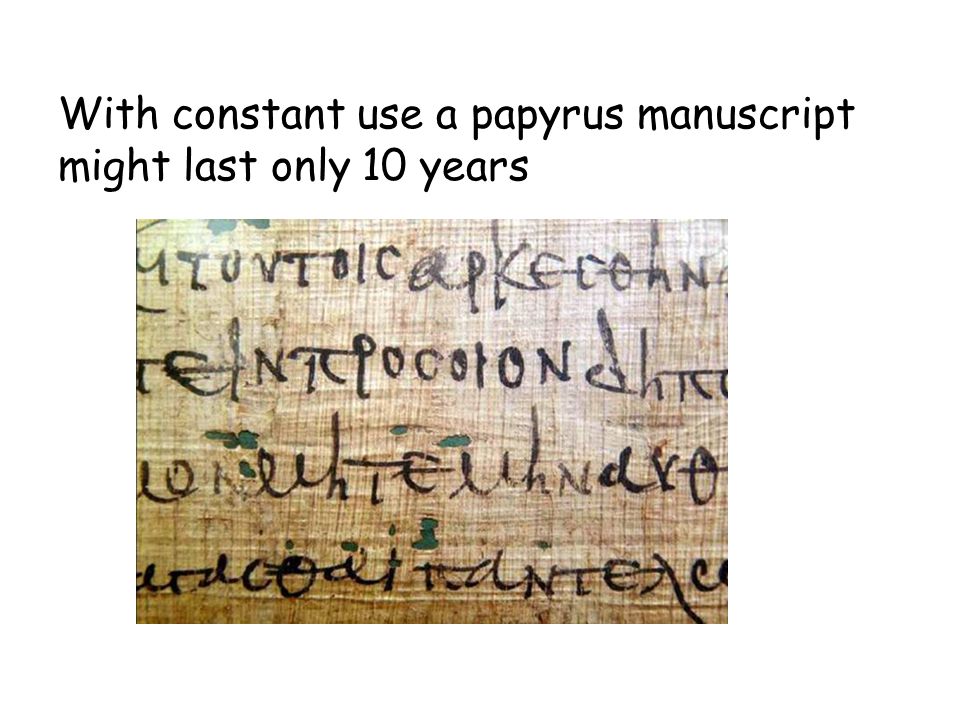 With constant use a papyrus manuscript
might last only 10 years
τουτοιϲαρκεϲθηνα
τεινπροϲοιονδηπ
μονμητεμηναυθ
αϲθαιπαντελω